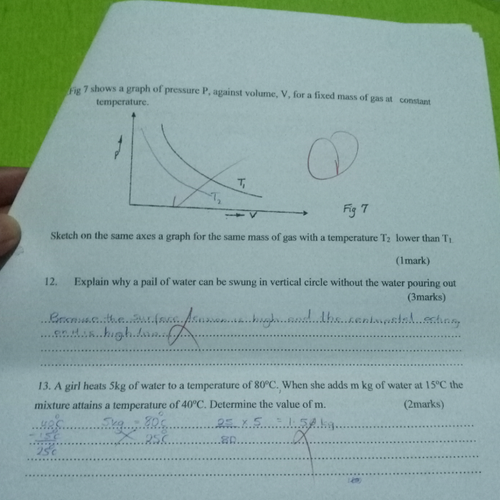 Fig 7 shows a graph of pressure P, against volume, V, for a fixed mass of gas at constant
temperature.
P
T₁
T₂
V
Fig 7
Sketch on the same axes a graph for the same mass of gas with a temperature T₂ lower than T₁
(1mark)
12. Explain why a pail of water can be swung in vertical circle without the water pouring out
(3marks)
Because the surface tension is high and the centripetal acting
on it is high
13. A girl heats 5kg of water to a temperature of 80°C. When she adds m kg of water at 15°C the
mixture attains a temperature of 40°C. Determine the value of m. (2marks)
40°C 5kg = 80°C 25 x 5 =
- 15°C 25°C 80
25°C